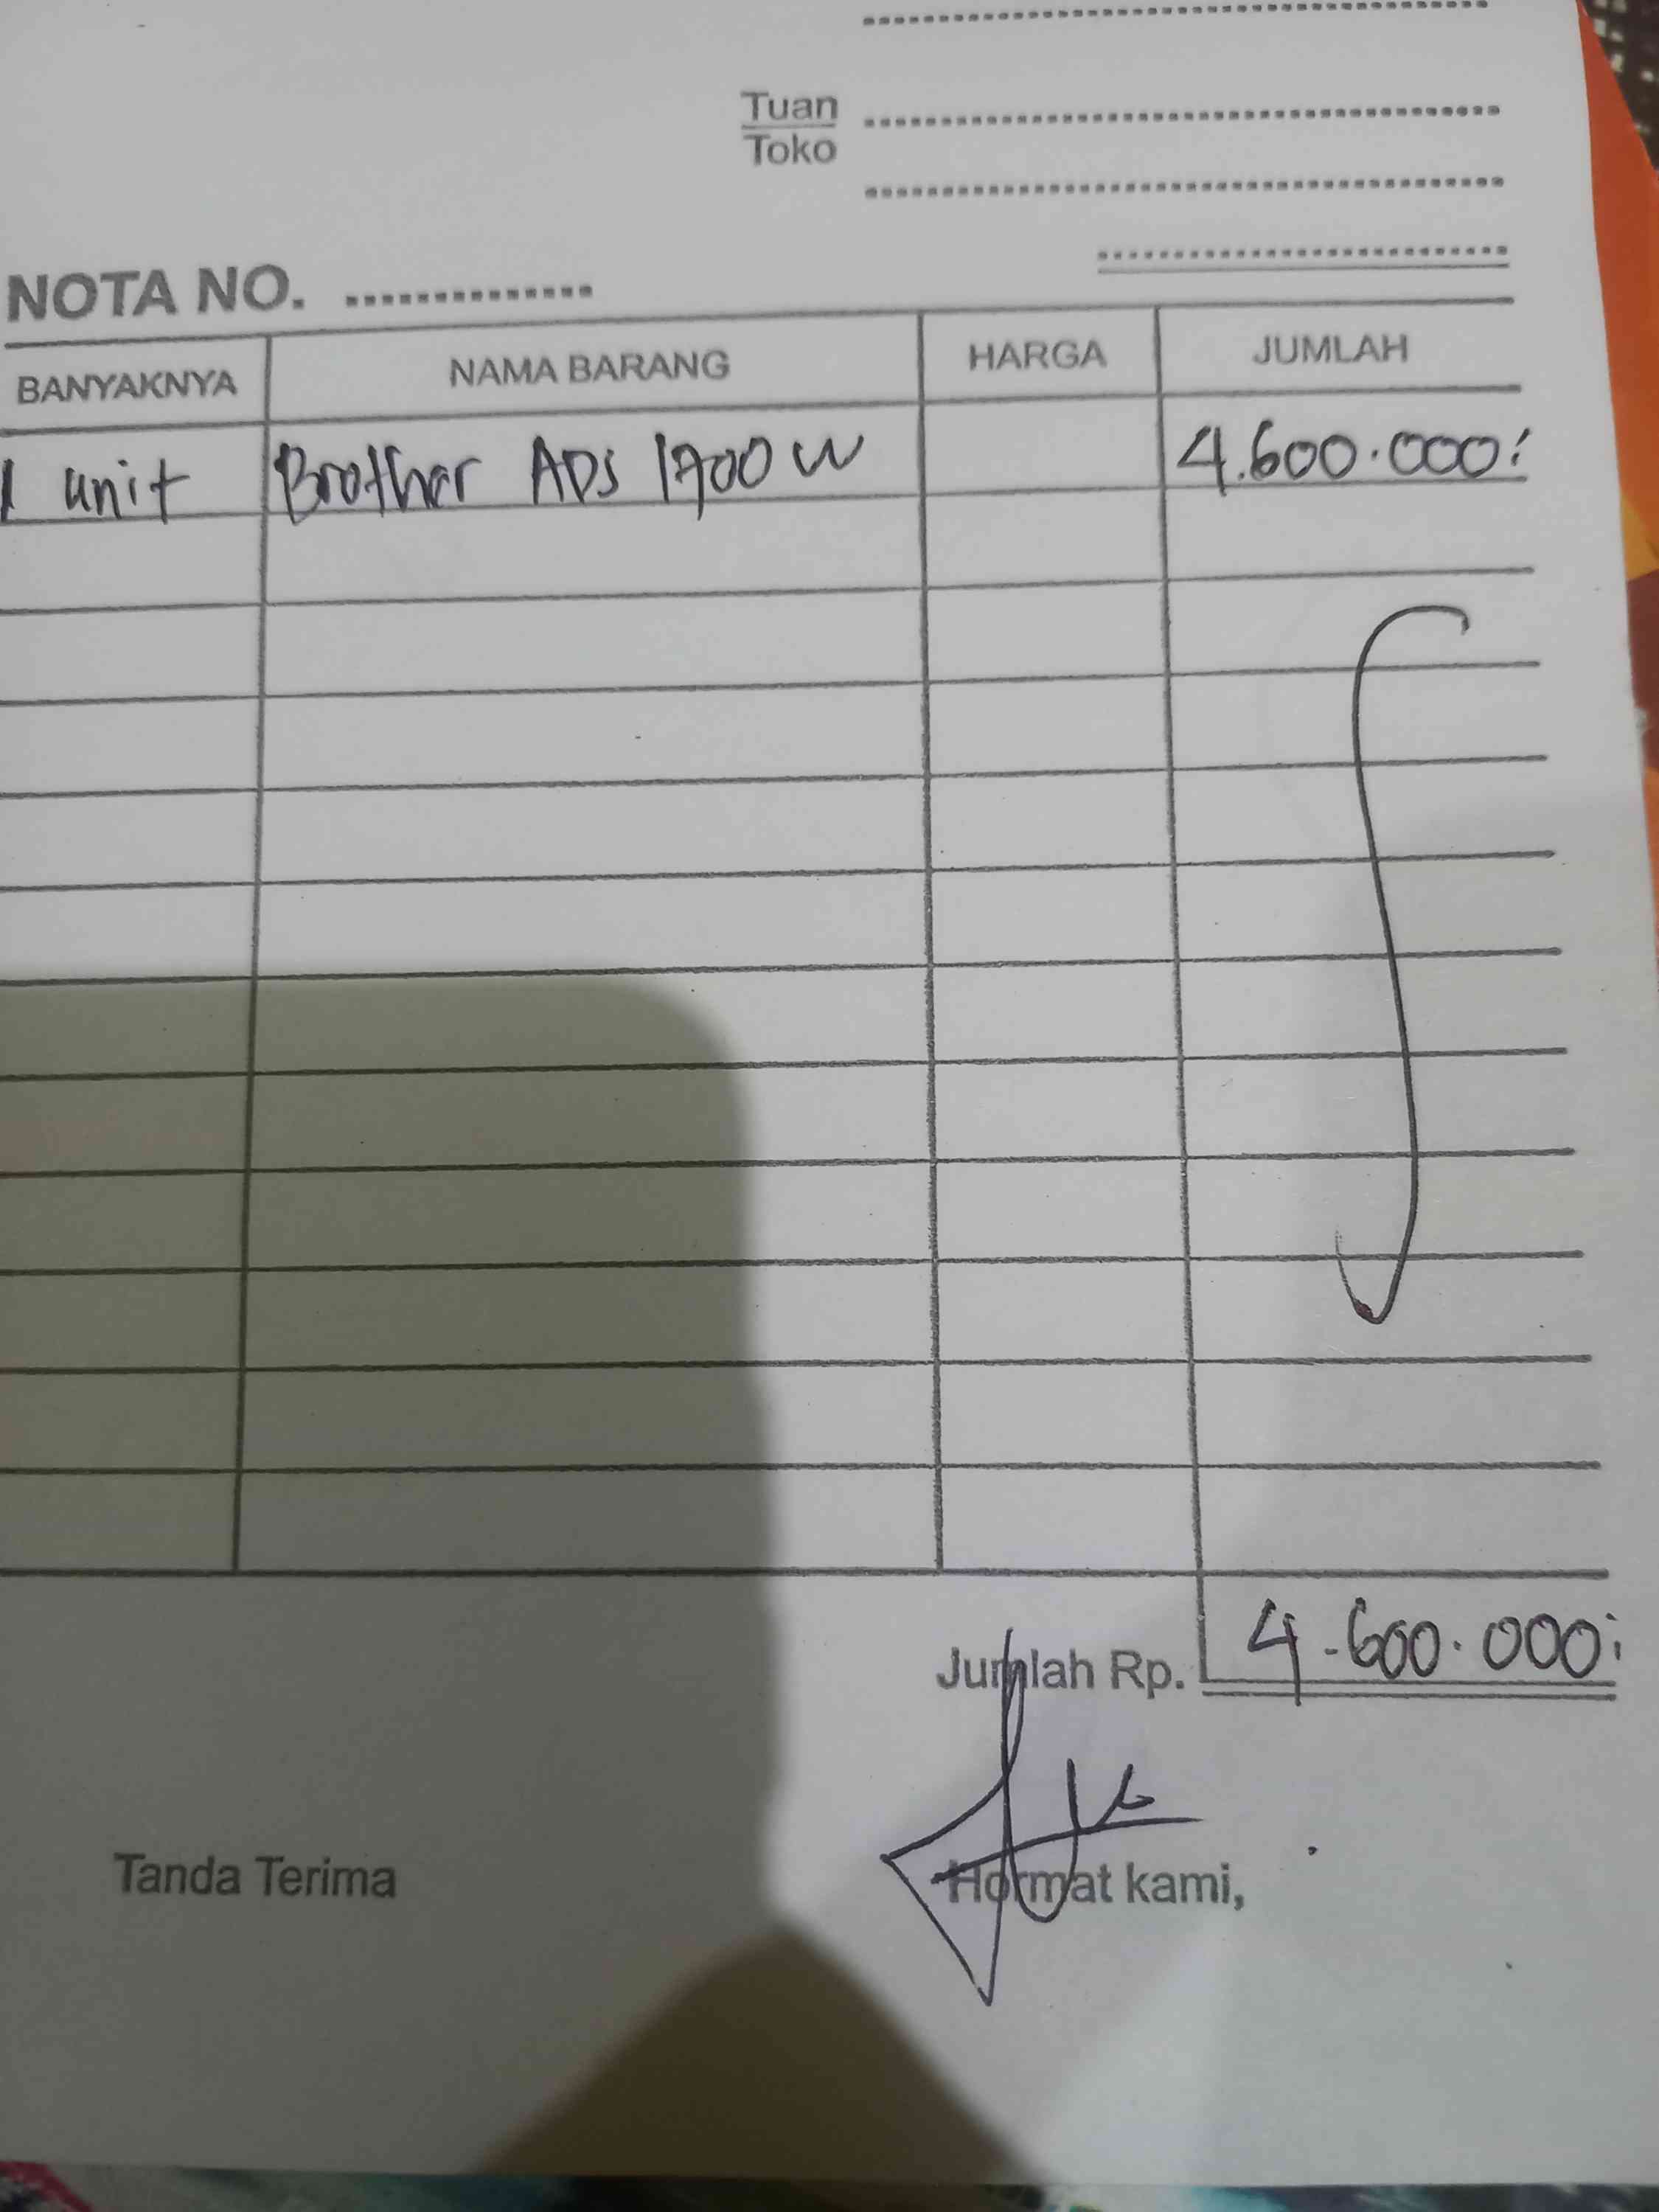 Tuan
Toko
NOTA NO. ..............
BANYAKNYA NAMA BARANG HARGA JUMLAH
1 unit Brother ADS 1700 W 4.600.000:
Jumlah Rp. 4.600.000:
Tanda Terima Hormat kami,